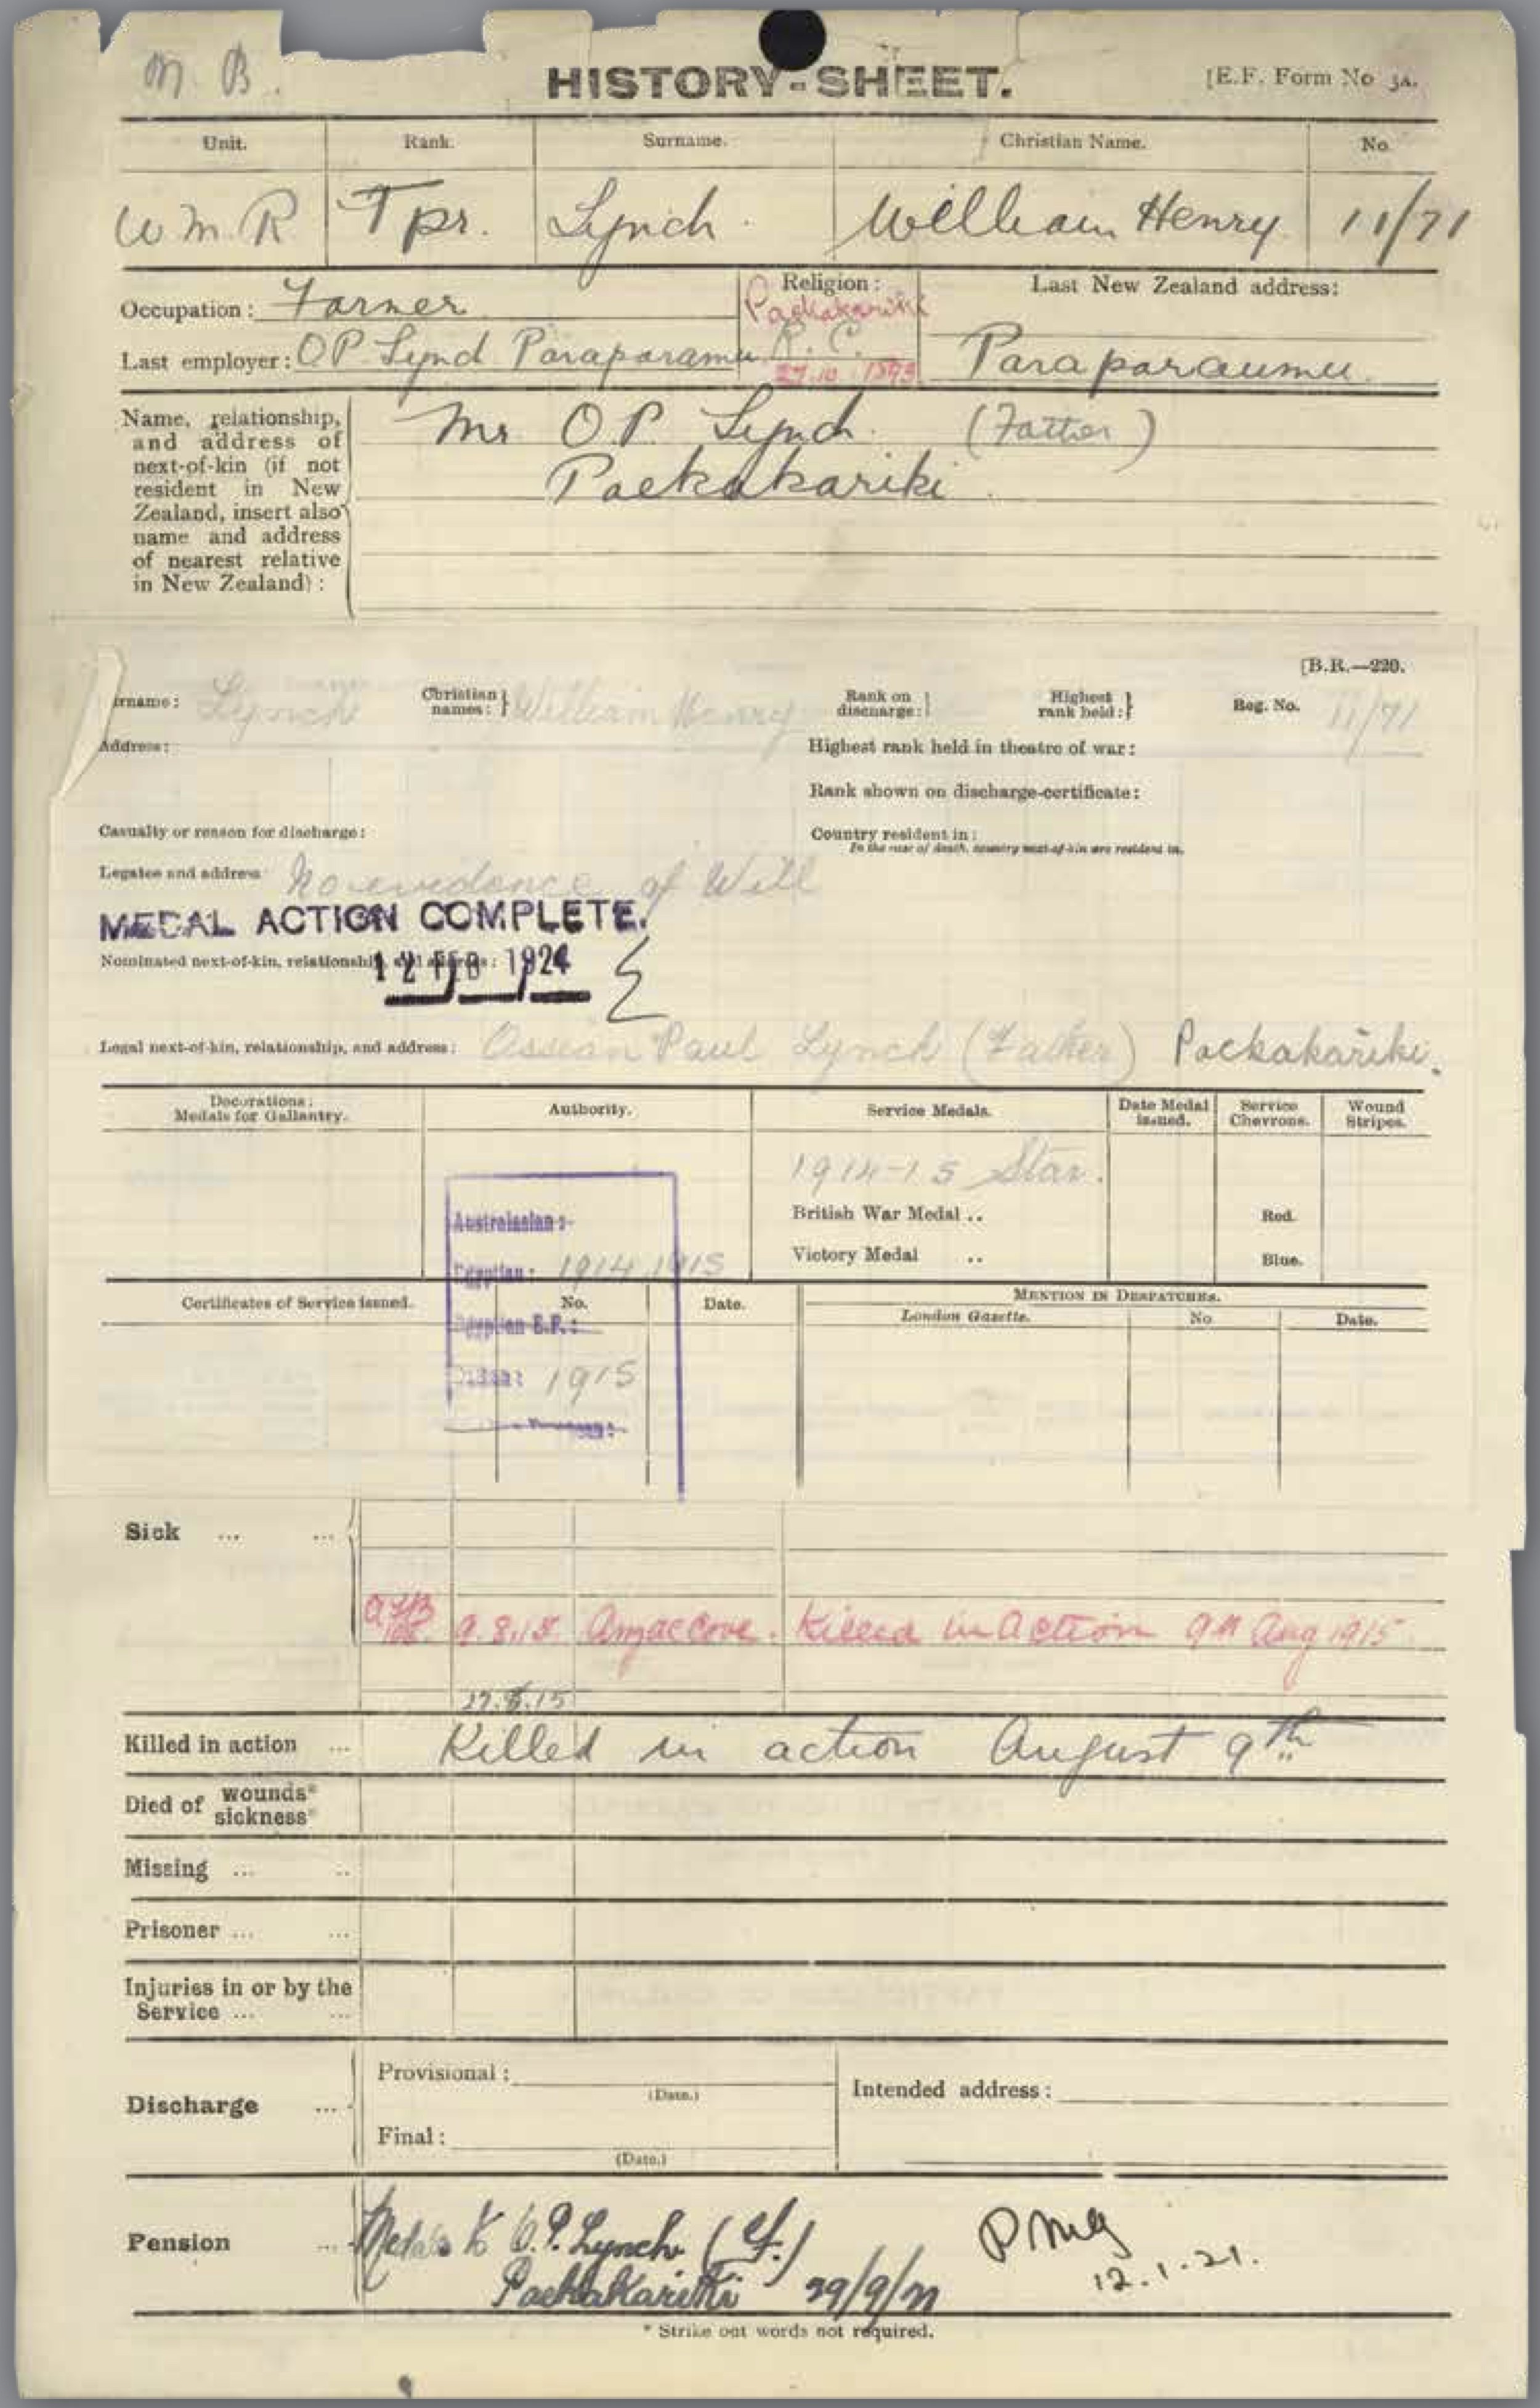 M. B.
HISTORY-SHEET.
[E.F. Form No 3A.
Unit. Rank. Surname. Christian Name. No.
W.M.R Tpr. Lynch. William Henry 11/71
Occupation: Farmer Religion: Last New Zealand address:
Paekakariki
Last employer: O P Lynd Paraparamu R. C. Paraparaumu
27.10.1893
Name, relationship, and address of next-of-kin (if not resident in New Zealand, insert also name and address of nearest relative in New Zealand):
Mr O.P. Lynch. (Father)
Paekakariki.
[B.R.—220.
urname: Lynch Christian names: William Henry Rank on discharge: Highest rank held: Reg. No. 11/71
Address: Highest rank held in theatre of war:
Rank shown on discharge-certificate:
Casualty or reason for discharge: Country resident in:
In the case of death, country next-of-kin are resident in.
Legatee and address No evidence of Will
MEDAL ACTION COMPLETE.
Nominated next-of-kin, relationship, and address:
12 FEB 1924
Legal next-of-kin, relationship, and address: Ossian Paul Lynch (Father) Paekakariki.
Decorations: Medals for Gallantry. Authority. Service Medals. Date Medal issued. Service Chevrons. Wound Stripes.
1914-15 Star.
Australasian:
British War Medal .. Red.
Victory Medal .. Blue.
Egyptian: 1914 1915
Certificates of Service issued. No. Date. MENTION IN DESPATCHES.
London Gazette. No. Date.
Egyptian E.F.:
1915
Sick ... ...
9.8.15 Anzac Cove. Killed in action 9th Aug 1915
Killed in action ... Killed in action August 9th
Died of wounds* sickness*
Missing ... ..
Prisoner ... ...
Injuries in or by the Service ... ...
Discharge ... Provisional: Intended address:
(Date.)
Final:
(Date.)
Pension ... Medals to O.P. Lynch (f.)
Paekakariki
12.1.21.
* Strike out words not required.